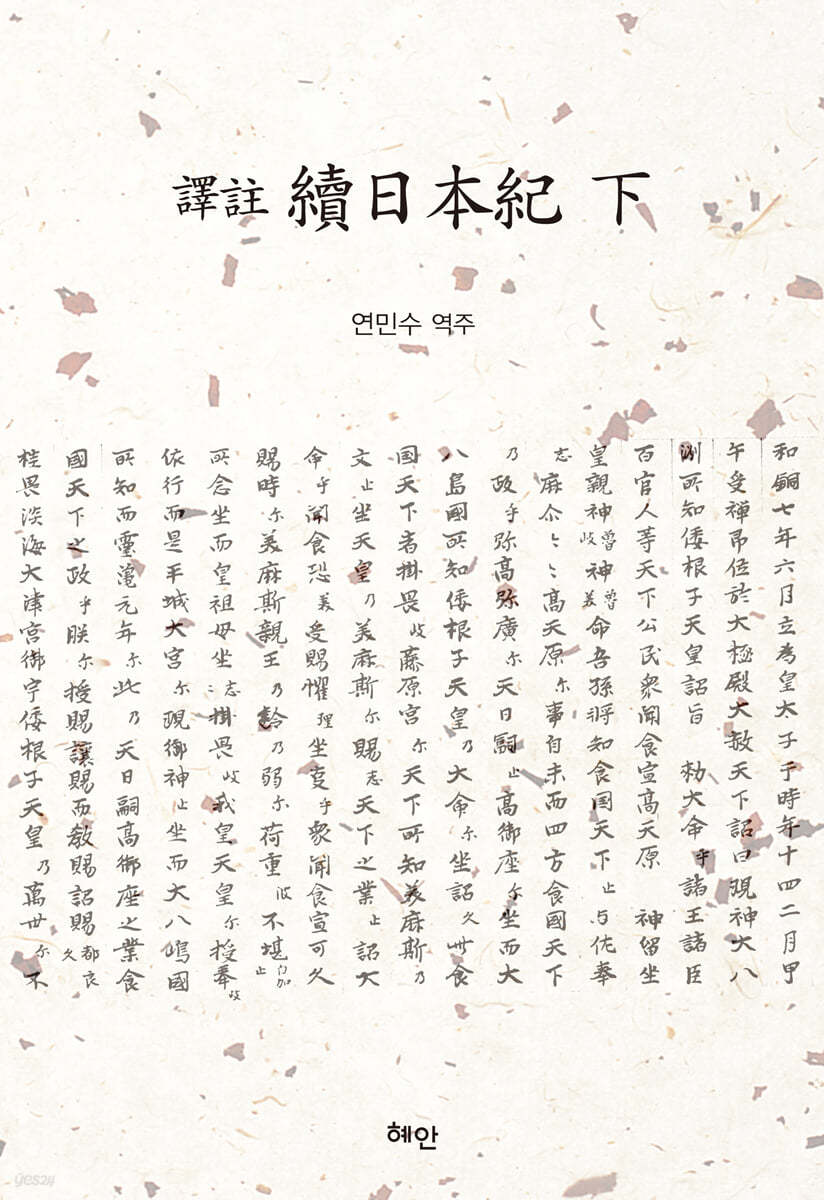 譯註 續日本紀 下
연민수 역주
和銅七年六月立為皇太子于時年十四二月甲
午受禪即位於大極殿大赦天下詔曰現神大八
洲所知倭根子天皇詔旨 勅大命乎諸王諸臣
百官人等天下公民衆聞食宣高天原 神留坐
皇親神魯岐神魯美命吾孫将知食国天下止与佐奉
志麻尓尓高天原尓事自未而四方食國天下
乃政乎弥高弥廣尓天日嗣止高御座尓坐而大
八島國所知倭根子天皇乃大命尓坐詔久此食
国天下者掛畏岐藤原宮尓天下所知美麻斯乃
文止坐天皇乃美麻斯尓賜志天下之業止詔大
命乎聞食恐美受賜懼理坐事乎衆聞食宣可久
賜時尓美麻斯親王乃齡乃弱尓荷重波不堪自加止
所念坐而皇祖母坐志掛畏岐我皇天皇尓授奉岐
依行而是平城大宮尓現御神止坐而大八嶋國
所知而靈亀元年尓此乃天日嗣高御座之業食
國天下之政乎朕尓授賜讓賜而教賜詔賜都良久
桂畏淡海大津宮御宇倭根子天皇乃萬世尓不
혜안
yes24